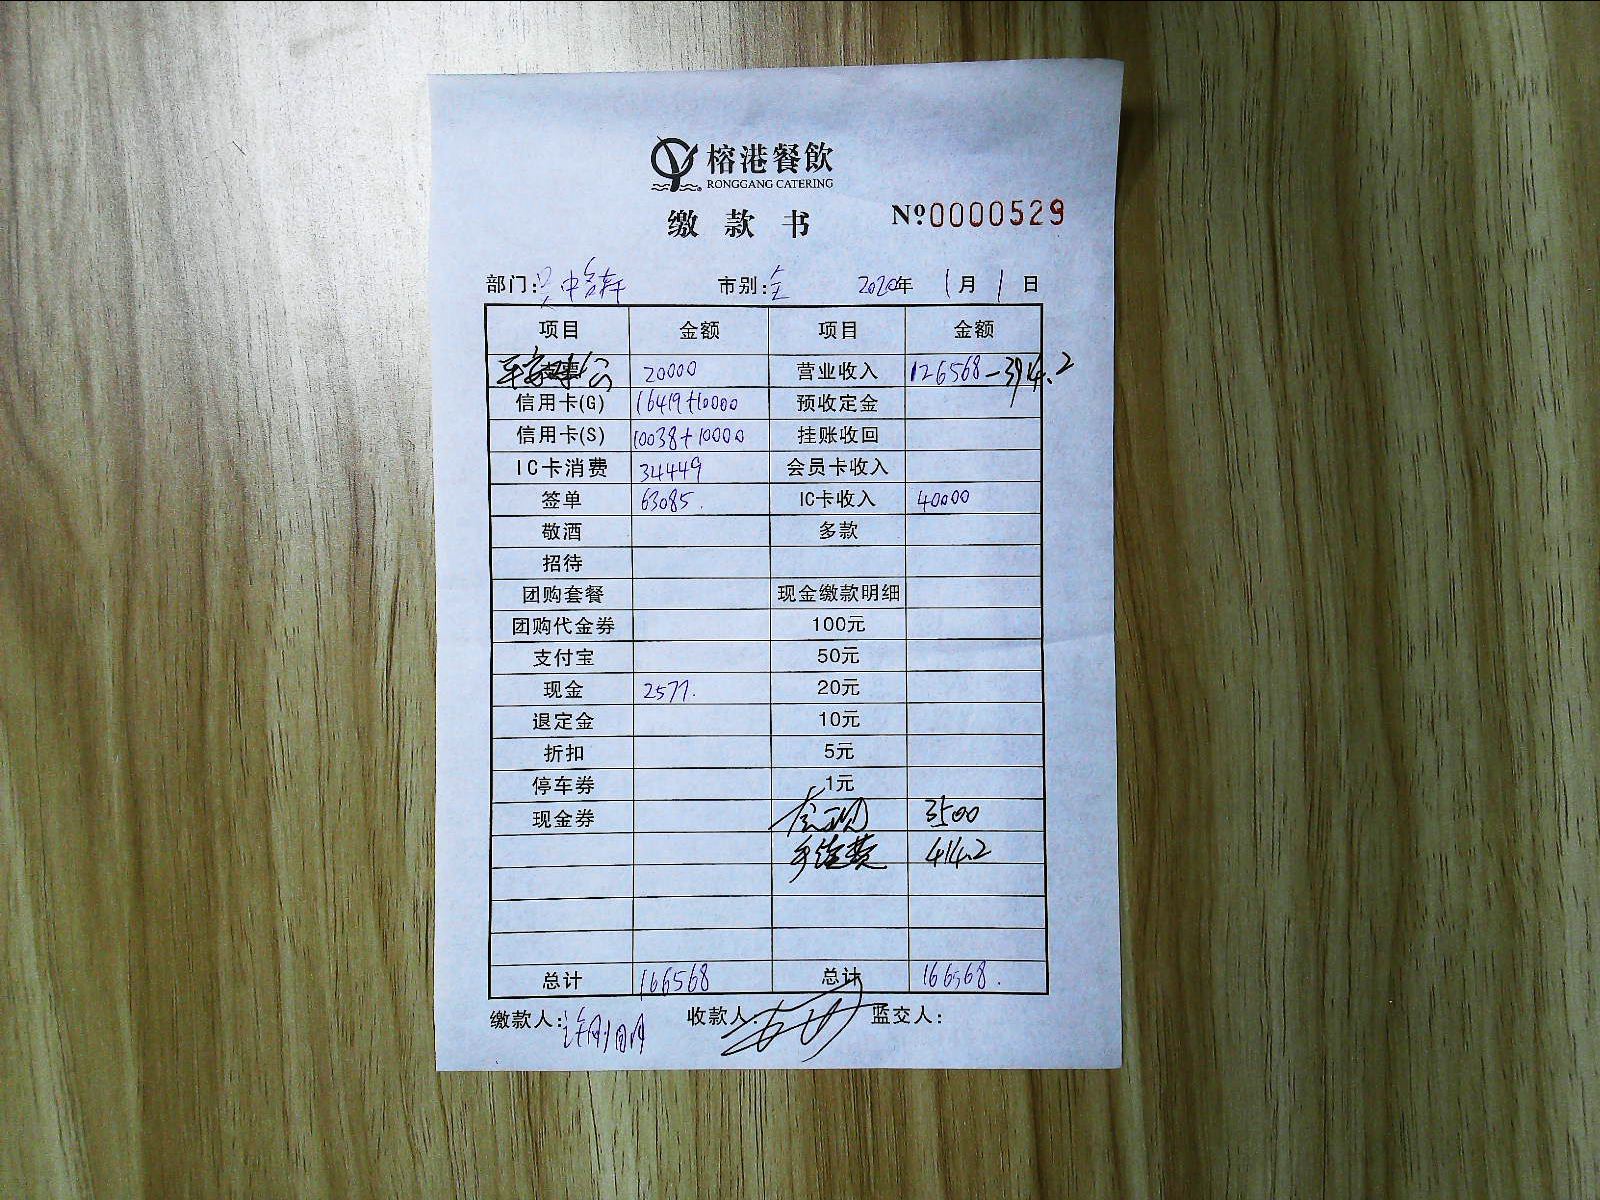 榕港餐飲
RONGGANG CATERING
缴款书 Nº0000529
部门: 市别:全 2020年 1月 1日
项目 金额 项目 金额
20000 营业收入 126568-3914.2
信用卡(G) 16419+10000 预收定金
信用卡(S) 10038+10000 挂账收回
IC卡消费 34449 会员卡收入
签单 63085. IC卡收入 40000
敬酒 多款
招待
团购套餐 现金缴款明细
团购代金券 100元
支付宝 50元
现金 2577. 20元
退定金 10元
折扣 5元
停车券 1元
现金券 3500
手续费 414.2
总计 166568 总计 166568.
缴款人: 收款人: 监交人: